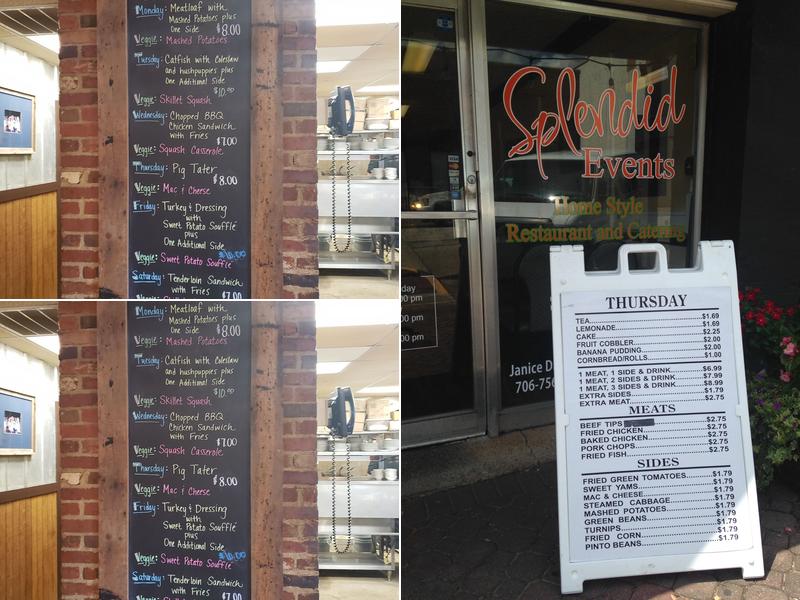 Monday: Meatloaf with
Mashed Potatoes plus
One Side $8.00
Veggie: Mashed Potatoes
Tuesday: Catfish with Coleslaw
and hushpuppies plus
One Additional Side
$10.00
Veggie: Skillet Squash
Wednesday: Chopped BBQ
Chicken Sandwich
with Fries
$7.00
Veggie: Squash Casserole
Thursday: Pig Tater
$8.00
Veggie: Mac & Cheese
Friday: Turkey & Dressing
with
Sweet Potato Souffle
plus
One Additional Side
$10.00
Veggie: Sweet Potato Souffle
Saturday: Tenderloin Sandwich
with Fries
$7.00
Monday: Meatloaf with
Mashed Potatoes plus
One Side $8.00
Veggie: Mashed Potatoes
Tuesday: Catfish with Coleslaw
and hushpuppies plus
One Additional Side
$10.00
Veggie: Skillet Squash
Wednesday: Chopped BBQ
Chicken Sandwich
with Fries
$7.00
Veggie: Squash Casserole
Thursday: Pig Tater
$8.00
Veggie: Mac & Cheese
Friday: Turkey & Dressing
with
Sweet Potato Souffle
plus
One Additional Side
$10.00
Veggie: Sweet Potato Souffle
Saturday: Tenderloin Sandwich
with Fries
$7.00
Splendid
Events
Home Style
Restaurant and Catering
VISA
day
00 pm
00 pm
00 pm
Janice D
706-756
THURSDAY
TEA $1.69
LEMONADE $1.69
CAKE $2.25
FRUIT COBBLER $2.00
BANANA PUDDING $2.00
CORNBREAD/ROLLS $1.00
1 MEAT, 1 SIDE & DRINK $6.99
1 MEAT, 2 SIDES & DRINK $7.99
1 MEAT, 3 SIDES & DRINK $8.99
EXTRA SIDES $1.79
EXTRA MEAT $2.75
MEATS
BEEF TIPS $2.75
FRIED CHICKEN $2.75
BAKED CHICKEN $2.75
PORK CHOPS $2.75
FRIED FISH $2.75
SIDES
FRIED GREEN TOMATOES $1.79
SWEET YAMS $1.79
MAC & CHEESE $1.79
STEAMED CABBAGE $1.79
MASHED POTATOES $1.79
GREEN BEANS $1.79
TURNIPS $1.79
FRIED CORN $1.79
PINTO BEANS $1.79